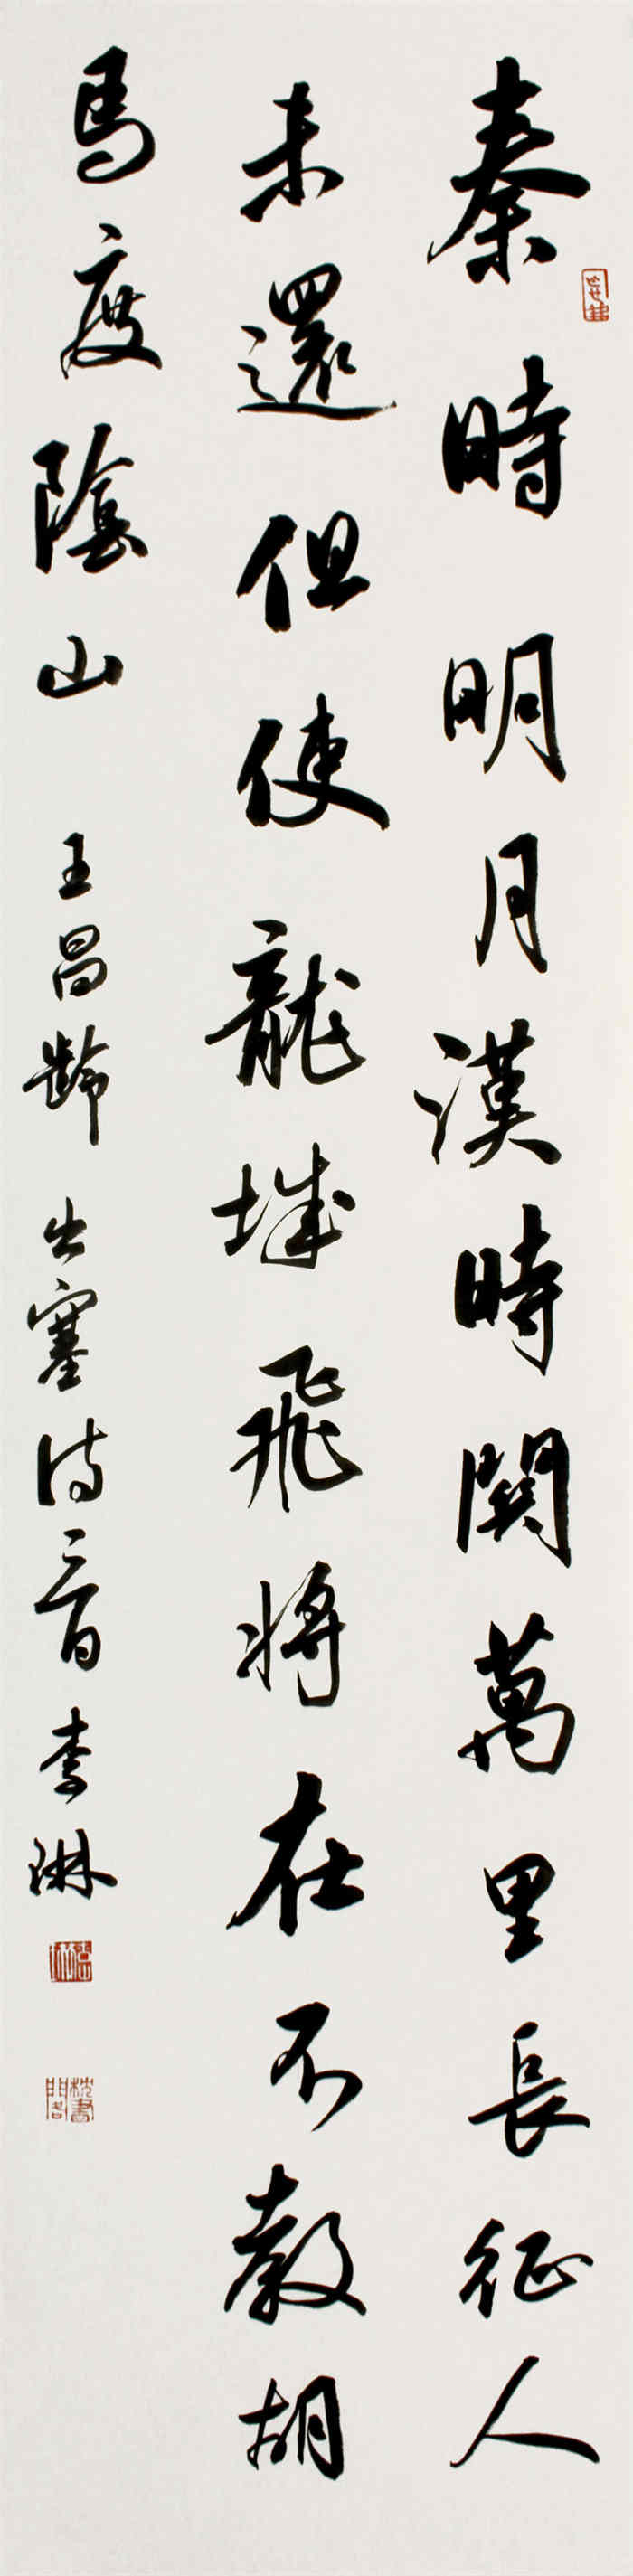 秦時明月漢時関萬里長征人
未還但使龍城飛将在不教胡
馬度陰山
王昌齡出塞诗一首李琳